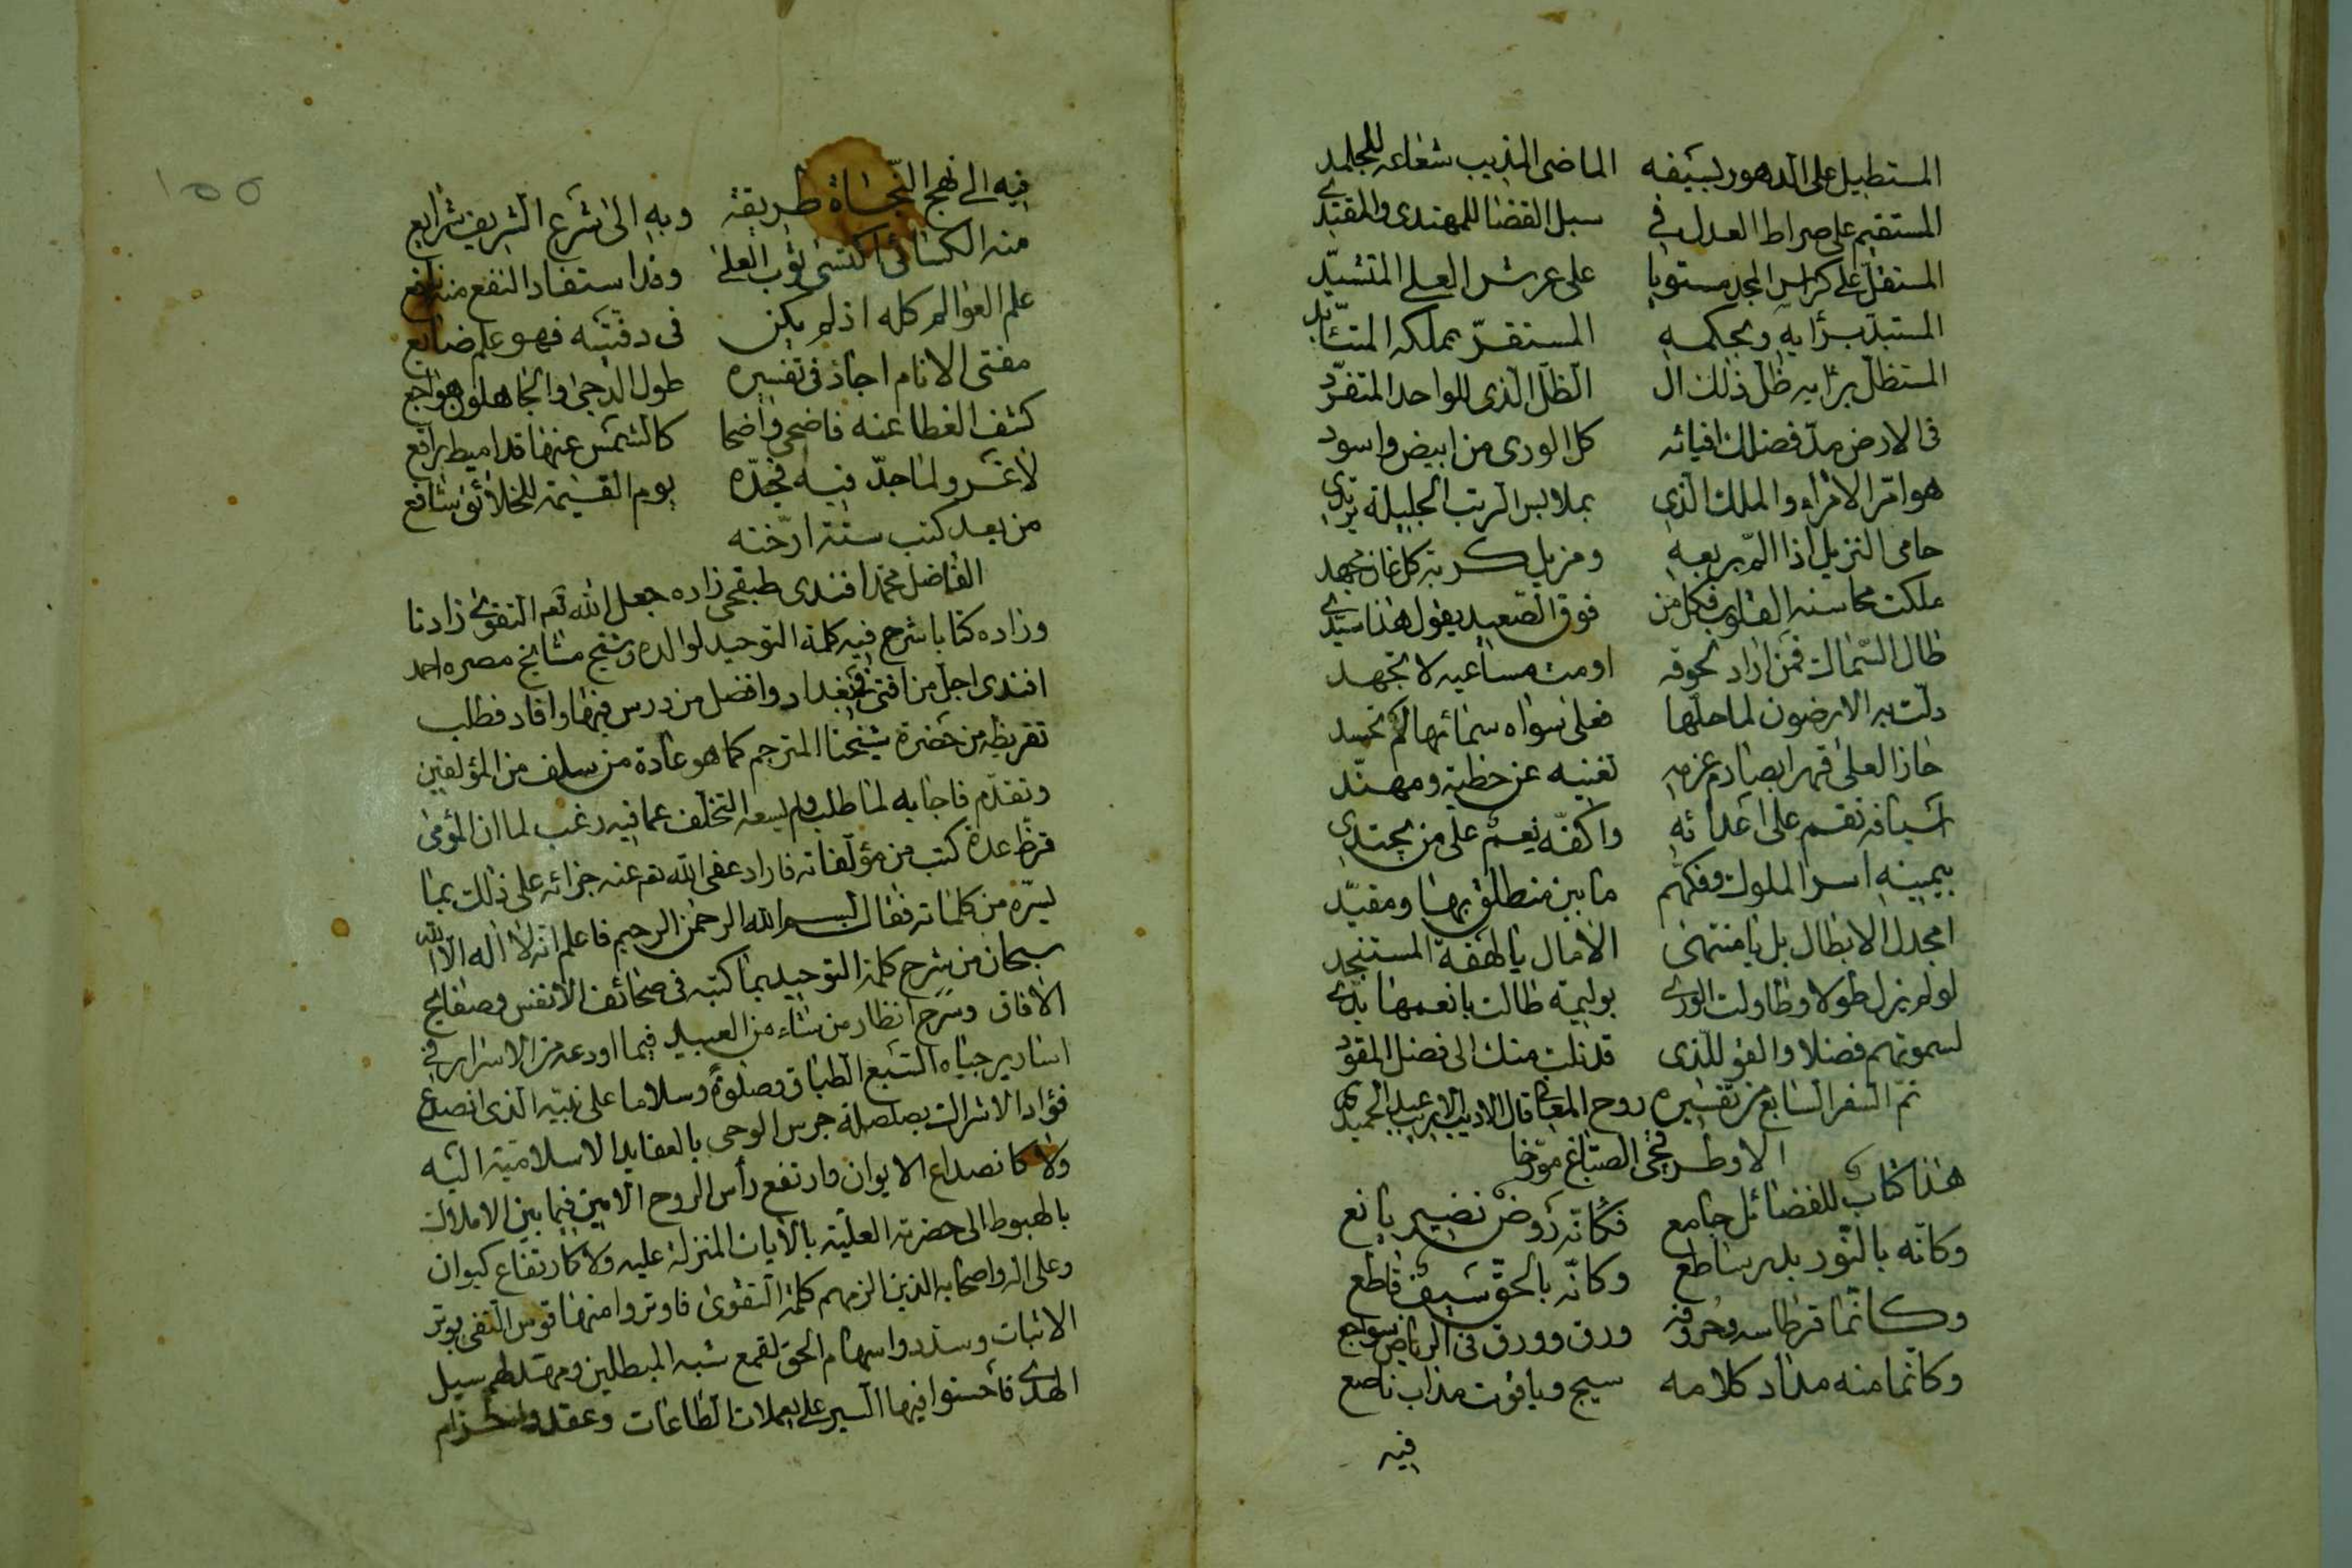 المستطيل على الدهور بسيفه الماضى المذيب شعاعه للجلمد
المستقيم على صراط العدل في سبل القضا للمهتدى والمقتدى
المستقل على كراسى المجد مستويا على عرش العلى المتشيّد
المستبدّ برأيه وبحكمه المستقرّ بملكه المتأبّد
المستظلّ برايه ظلّ ذلك ال الظلّ الذى للواحد المتفرّد
فى الارض مدّ فضلك افيائه كل الورى من ابيض واسود
هو امّر الامراء والملك الذى بملابس الرتب الجليلة يرتدى
حامى النزيل اذا المّ بربعه ومزيل كربة كل غان مجهد
ملكت محاسنه القلوب فكل من فوق الصّعيد يقول هذا سيّدى
طال السّماك فمن اراد لحوقه اومت مساعيه لا تجهد
دلّت به الارضون لما حلّها فعلى سواه سمائها لم تحسد
حاز العلى قهرا بصارم عزمه تغنيه عن خطيّه ومهنّد
اسيافه نقم على اعدائه واكفّه نعم على من يجتدى
بيمينه اسر الملوك وفكّهم ما بين منطلق بها ومقيّد
امجدل الابطال بل يا منتهى الامال يا لهفة المستنجد
لو لم يزل طولا وطاولت الورى بوليمة طالت بانعمها يدى
لسموتهم فضلا والقو للّذى قد نلت منك الى فضل المقود
تمّ السفر السابع من تفسيره روح المعانى قال الاديب الاريب عبد الحميد
الاوطرقجى الصبّاغ مورّخا
هذا كتاب للفضائل جامع فكانّه روض نضير يانع
وكانّه بالنّور بدر ساطع وكانّه بالحقّ سيف قاطع
وكانّما قرطاسه وحروفه ورق وورق فى الرياض سواجع
وكانما منه مداد كلامه سيج وياقوت مذاب ناصع
فيه
١٥٥
فيه الى نهج النّجاة طريقة وبه الى شرع الشريف شرايع
منه الكسائى اكتسى ثوب العلى وغدا استفاد النفع منه نافع
علم العوالم كله اذ لم يكن فى دفتيه فهو علم ضايع
مفتى الانام اجاذ فى تفسيره طول الدجى والجاهلون هواجع
كشف الغطا عنه فاضحى واضحا كالشمس عنها قد اميط براقع
لا غرو لما جدّ فيه فجدّه يوم القيمة للخلائق شافع
من بعد كتب ستة ارّخته
الفاضل محمد افندى طبقجى زاده جعل الله تعم التقوى زادنا
وزاده كتابا شرح فيه كلمة التوحيد لوالده وشيخ مشايخ مصره احمد
افندى اجل من افتى فى بغداد وافضل من درس فيها وافاد فطلب
تقريظه من حضرة شيخنا المترجم كما هو عادة من سلف من المؤلفين
وتقدّم فاجابه لما طلب ولم يسعه التخلف عما فيه رغب لما ان المؤمى
قرظ عدة كتب من مؤلفاته فاراد عفى الله تعم عنه جزائه على ذلك بما
يسّره من كلماته فقال بسم الله الرحمن الرحيم فاعلم انه لا اله الا الله
سبحان من شرح كلمة التوحيد بما كتبه فى صحائف الانفس وصفايح
الافاق وسرح انظار من شاء من العبيد فيما اودعه من الاسرار في
اسارير جباه السّبع الطباق وصلوة وسلاما على نبيّه الذى انصدع
فؤاد الاشراك بصلصلة جرس الوحى بالعقايد الاسلامية اليه
ولا كانصداع الايوان وارتفع رأس الروح الامين فيما بين الاملاك
بالهبوط الى حضرته العليّة بالآيات المنزلة عليه ولا كارتفاع كيوان
وعلى اله واصحابه الذين الزمهم كلمة التقوى فاوتروا منها قوس النفى بوتر
الاثبات وسدّدوا سهام الحق لقمع شبه المبطلين ومهّد لهم سبيل
الهدى فأحسنوا فيها السير على يعملات الطاعات وعقدوا حزام